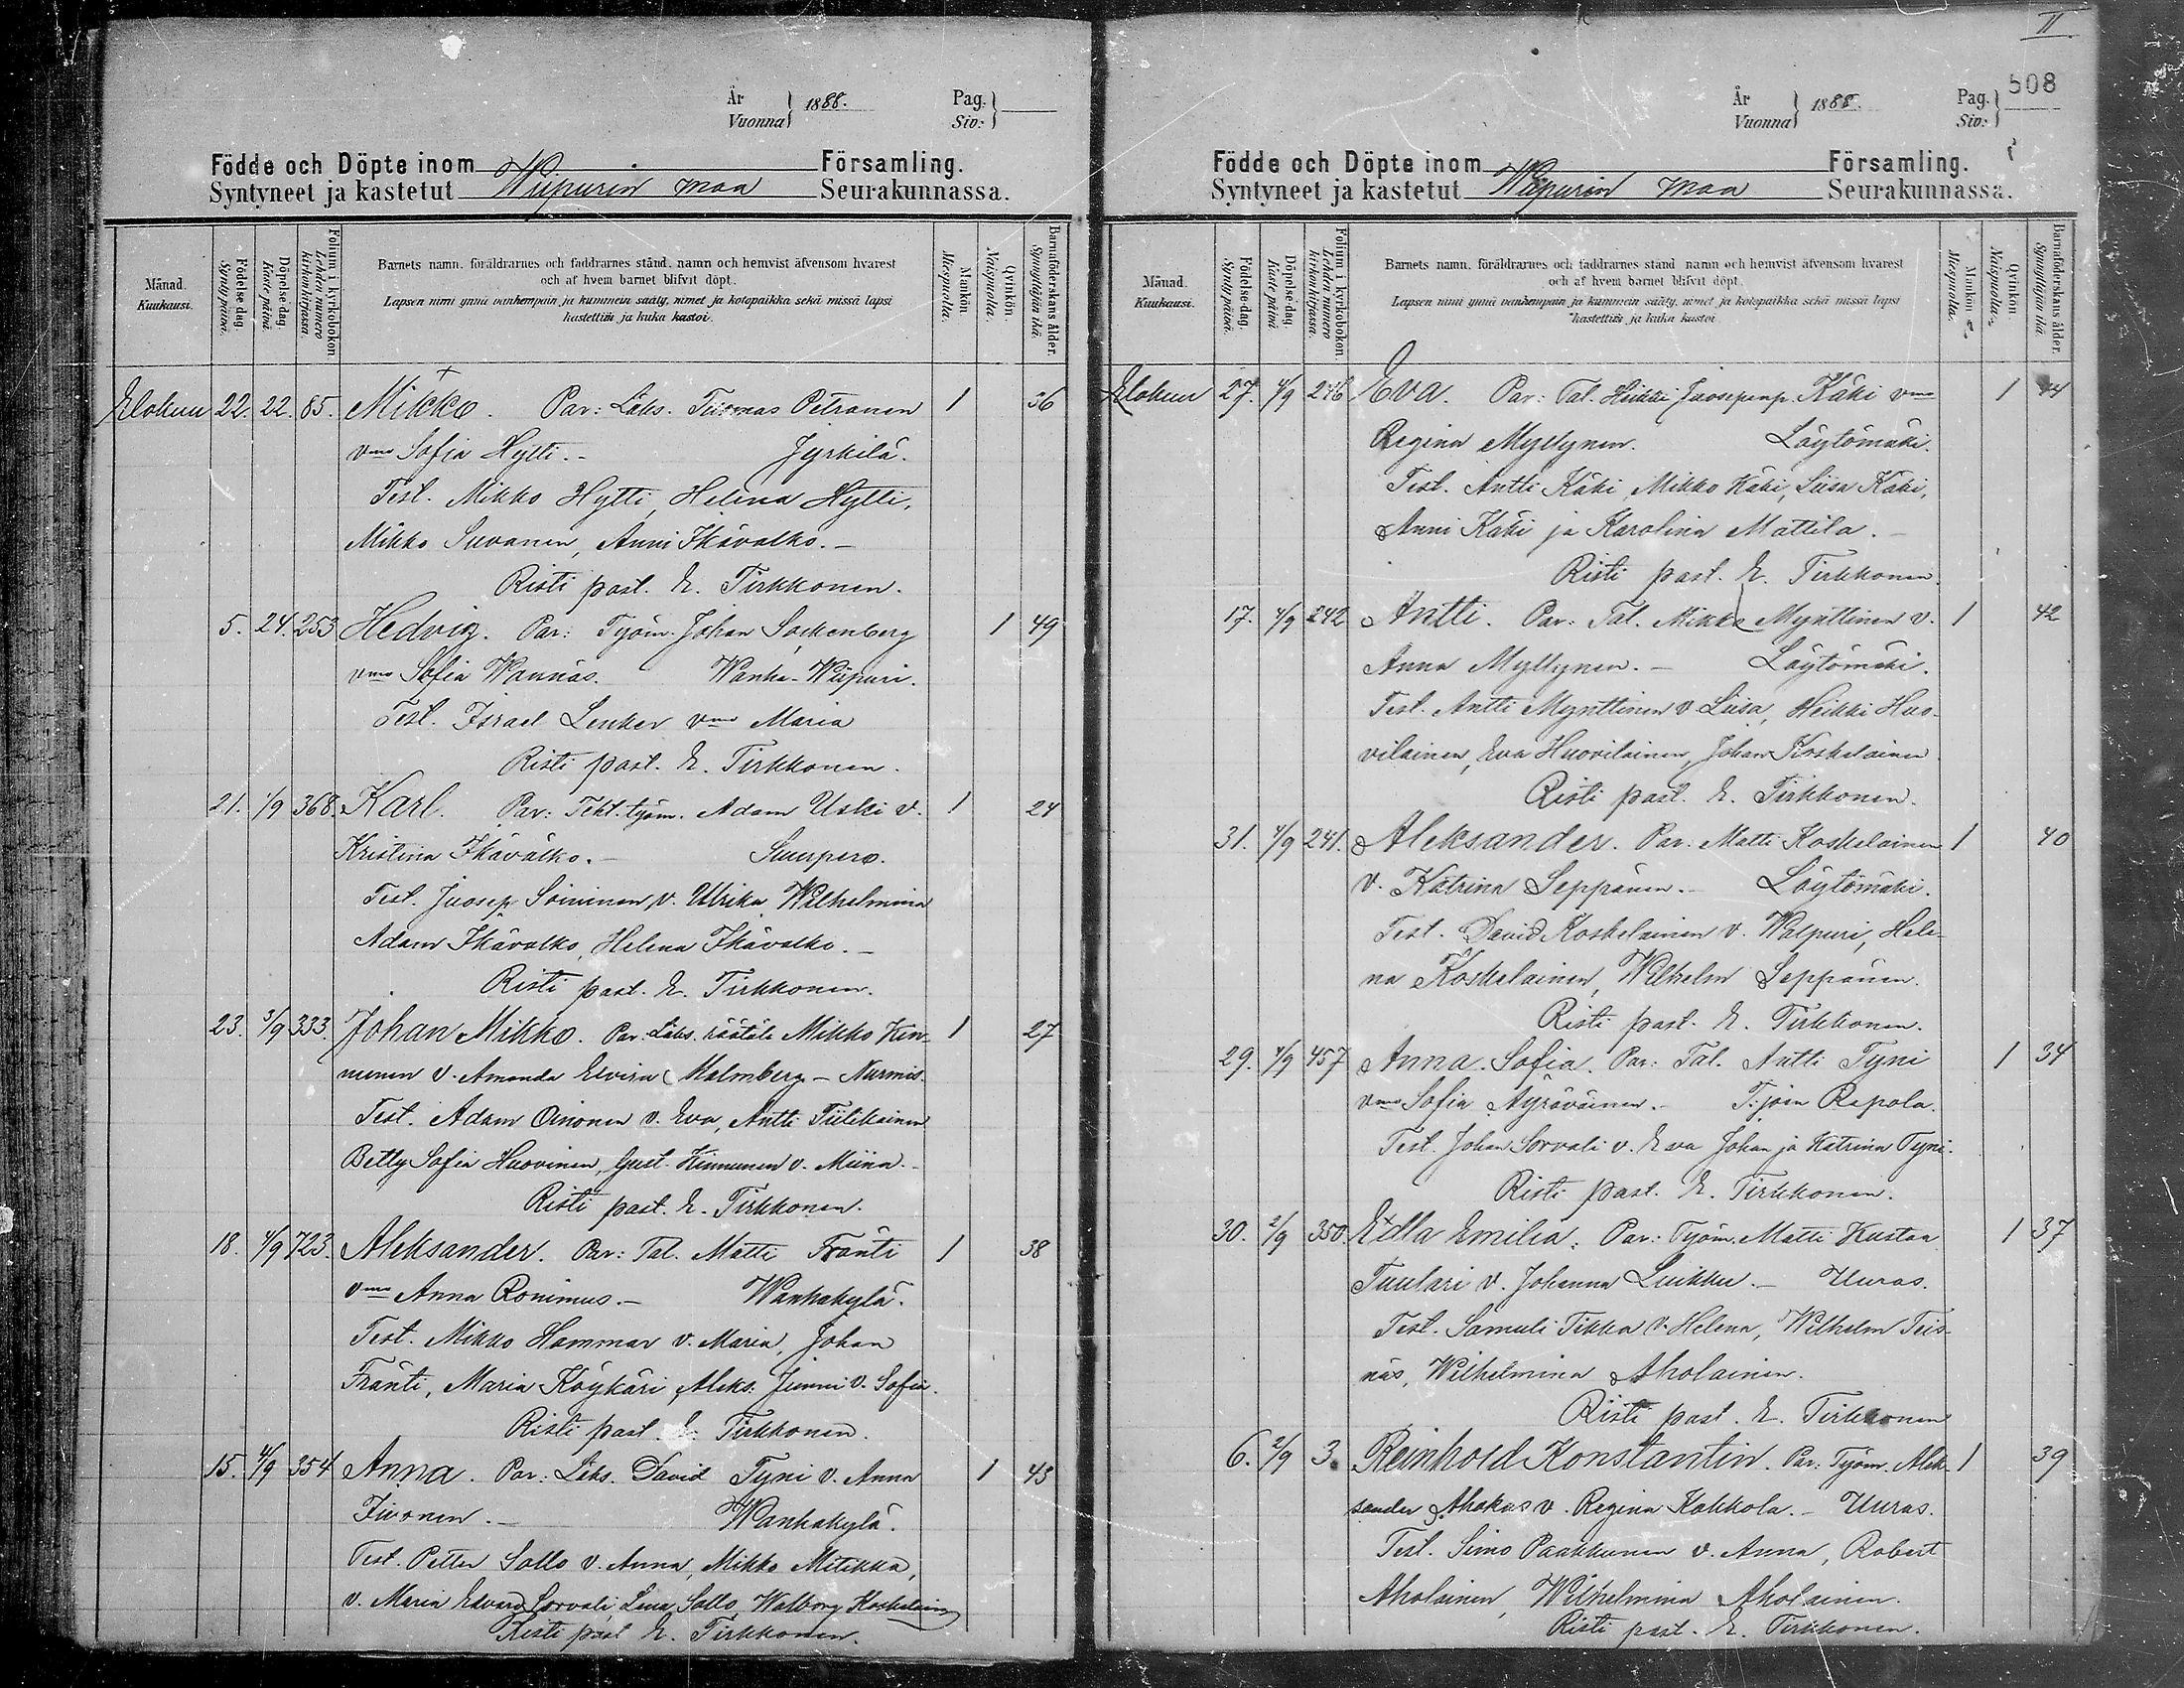 År
Vuonna } 1888.
Pag.
Siv: }
Födde och Döpte inom Församling.
Syntyneet ja kastetut Wiipurin maa Seurakunnassa.
Månad. Kuukausi.
Födelse-dag. Syntypäivä.
Döpelse-dag. Kaste-päivä.
Folium i kyrkoboken. Lehden numero kirkonkirjassa.
Barnets namn, föräldrarnes och faddrarnes stånd, namn och hemvist äfvensom hvarest
och af hvem barnet blifvit döpt.
Lapsen nimi ynnä vanhempain ja kummein sääty, nimet ja kotopaikka sekä missä lapsi
kastettiin ja kuka kastoi.
Mankön. Miespuolia.
Qvinkön. Naispuolia.
Barnaföderskans ålder. Synnyttäjän ikä.
Elokuu 22. 22. 85. Mikko. Par: Läks. Tuomas Petranen 1 36
vmo Sofia Hytti.- Jyrkilä.
Test. Mikko Hytti, Helena Hytti,
Mikko Suvanen, Anni Ikävalko.-
Risti past. E. Tirkkonen.
5. 24. 253 Hedvig. Par: Työm. Johan Sackenberg 1 49
vmo Sofia Wannäs. Wanha-Wiipuri.
Test. Israel Lenker vmo Maria
Risti past. E. Tirkkonen.
21. 1/9 368. Karl. Par: Teht. työm. Adam Uski v. 1 24
Kristina Ikävalko.- Suurpero.
Test. Juosep Soininen v. Ulrika Wilhelmina
Adam Ikävalko, Helena Ikävalko.-
Risti past. E. Tirkkonen.
23. 3/9 333. Johan Mikko. Par. Läks. räätäli Mikko Kin- 1 27
nunen v. Amanda Elvira Malmberg - Nurmis.
Test. Adam Oinonen v. Eva, Antti Tiilikainen
Betty Sofia Huovinen, Gust. Kinnunen v. Miina.-
Risti past. E. Tirkkonen.
18. 4/9 723. Aleksander. Par: Tal. Matti Fränti 1 38
vmo Anna Ronimus.- Wanhakylä.
Test. Mikko Hammar v. Maria, Johan
Fränti, Maria Köykäri, Aleks. Junni v. Sofia.
Risti past. E. Tirkkonen.
15. 4/9 354 Anna. Par: Läks. David Tyni v. Anna 1 43
Iivonen.- Wanhakylä.
Test. Petter Sallo v. Anna, Mikko Mitikka,
v. Maria Edvard Sorvali, Lena Sallo, Walborg Koskelainen
Risti past E. Tirkkonen.
II
508
År
Vuonna } 1888.
Pag.
Siv: }
Födde och Döpte inom Församling.
Syntyneet ja kastetut Wiipurin maa Seurakunnassa.
Månad. Kuukausi.
Födelse-dag. Syntypäivä.
Döpelse-dag. Kaste-päivä.
Folium i kyrkoboken. Lehden numero kirkonkirjassa.
Barnets namn, föräldrarnes och faddrarnes stånd namn och hemvist äfvensom hvarest
och af hvem barnet blifvit döpt.
Lapsen nimi ynnä vanhempain ja kummein sääty, nimet ja kotopaikka sekä missä lapsi
kastettiin ja kuka kastoi
Mankön Miespuolia.
Qvinkön. Naispuolia.
Barnaföderskans ålder. Synnyttäjän ikä
Elokuu 27. 4/9 246 Eva. Par: Tal. Heikki Juosepinp. Käki vmo 1 44
Regina Myllynen. Läytömäki.
Test. Antti Käki, Mikko Käki, Liisa Käki,
Anni Käki ja Karolina Mattila.-
Risti past. E. Tirkkonen.
17. 4/9 242 Antti. Par: Tal. Mikko Mynttinen v. 1 42
Anna Myllynen.- Läytömäki.
Test. Antti Mynttinen v. Liisa, Heikki Huo-
vilainen, Eva Huovilainen, Johan Koskelainen
Risti past. E. Tirkkonen.
31. 4/9 241. Aleksander. Par. Matti Koskelainen 1 40
v. Katrina Seppänen.- Läytömäki.
Test. David Koskelainen v. Walpuri, Hele-
na Koskelainen, Wilhelm Seppänen.
Risti past. E. Tirkkonen.
29. 4/9 457 Anna Sofia. Par: Tal. Antti Tyni 1 34
vmo Sofia Äyräväinen.- T:join Repola.
Test. Johan Sorvali v. Eva Johan ja Katrina Tyni.
Risti past. E. Tirkkonen.
30. 2/9 350. Edla Emilia. Par: Työm. Matti Kustaa 1 37
Tuulari v. Johanna Luikku.- Uuras.
Test. Samuli Tikka v. Helena, Wilhelm Teis-
näs, Wilhelmina Aholainen.
Risti past. E. Tirkkonen
6. 2/9 3. Reinhold Konstantin. Par: Työm. Alek- 1 39
sander Ahokas v. Regina Kokkola.- Uuras.
Test. Simo Paakkunen v. Anna, Robert
Aholainen, Wilhelmina Aholainen.
Risti past. E. Tirkkonen.